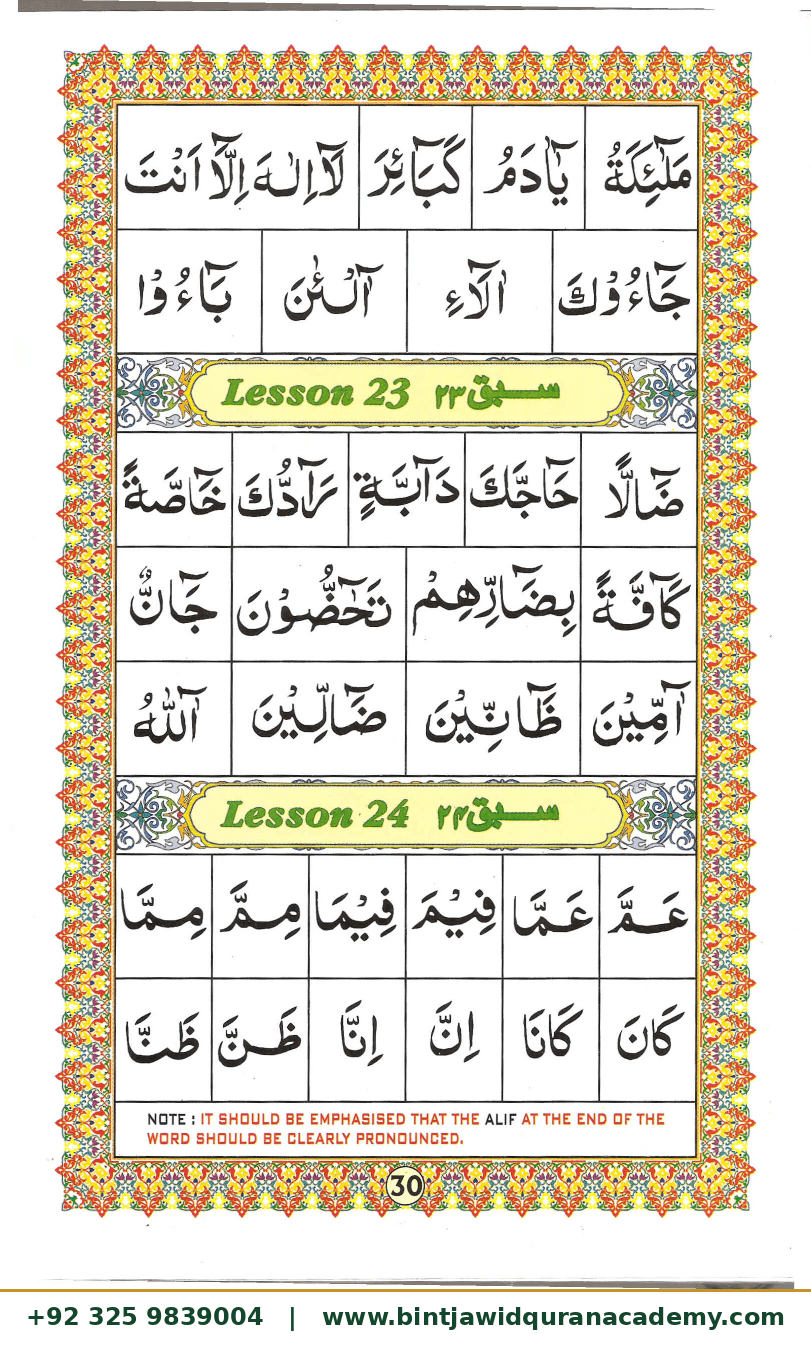 مَلٰٓئِكَةُ يٰٓاٰدَمُ كَبَآئِرَ لَآ اِلٰهَ اِلَّآ اَنْتَ
جَآءُوْكَ اٰلَآءِ آلْـٰٔنَ بَآءُوْا
Lesson 23 سبق ۲۳
ضَآلًّا حَآجَّكَ دَآبَّةٍ رَآدُّكَ خَآصَّةً
كَآفَّةً بِضَآرِّهِمْ تَحٰٓضُّوْنَ جَآنٌّ
آمِّيْنَ ظَآنِّيْنَ ضَآلِّيْنَ آللّٰهُ
Lesson 24 سبق ۲۴
عَمَّ عَمَّا فِيْمَ فِيْمَا مِمَّ مِمَّا
كَانَ كَانَا اِنَّ اِنَّا ظَنَّ ظَنَّا
NOTE : IT SHOULD BE EMPHASISED THAT THE ALIF AT THE END OF THE
WORD SHOULD BE CLEARLY PRONOUNCED.
30
+92 325 9839004 | www.bintjawidquranacademy.com